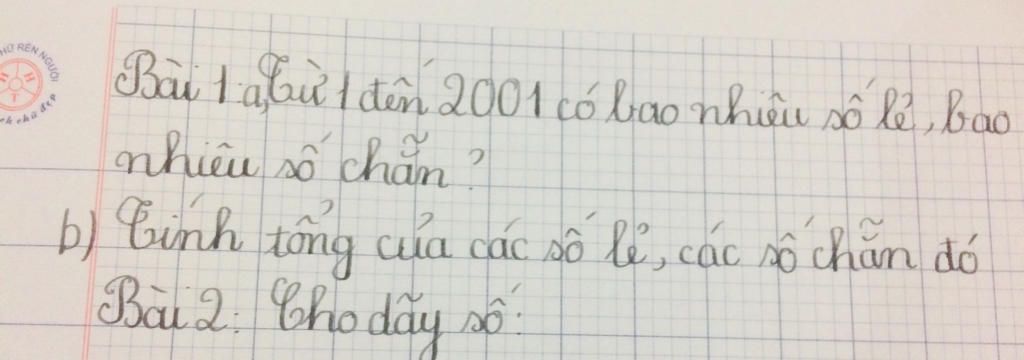 Bài 1 a, Từ 1 đến 2001 có bao nhiêu số lẻ, bao
nhiêu số chẵn?
b) Tính tổng của các số lẻ, các số chẵn đó
Bài 2: Cho dãy số: